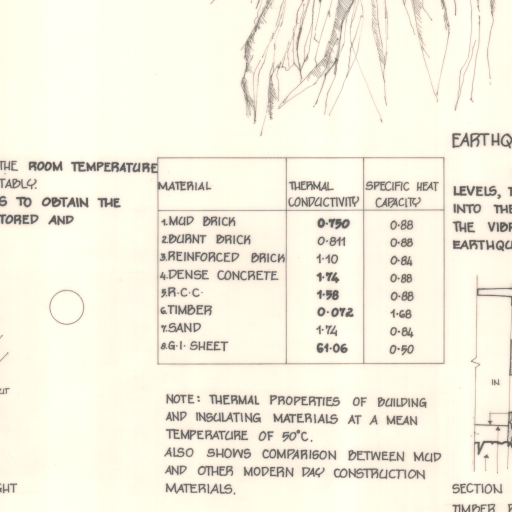 EARTHQ
THE ROOM TEMPERATURE
TABLY.
S TO OBTAIN THE
TORED AND
MATERIAL THERMAL CONDUCTIVITY SPECIFIC HEAT CAPACITY
1.MUD BRICK 0.750 0.88
2.BURNT BRICK 0.811 0.88
3.REINFORCED BRICK 1.10 0.84
4.DENSE CONCRETE 1.74 0.88
5.R.C.C. 1.58 0.88
6.TIMBER 0.072 1.68
7.SAND 1.74 0.84
8.G.I. SHEET 61.06 0.50
NOTE: THERMAL PROPERTIES OF BUILDING
AND INSULATING MATERIALS AT A MEAN
TEMPERATURE OF 50°C.
ALSO SHOWS COMPARISON BETWEEN MUD
AND OTHER MODERN DAY CONSTRUCTION
MATERIALS.
LEVELS, T
INTO THE
THE VIB
EARTHQU
IN
SECTION
TIMBER
UT
GHT